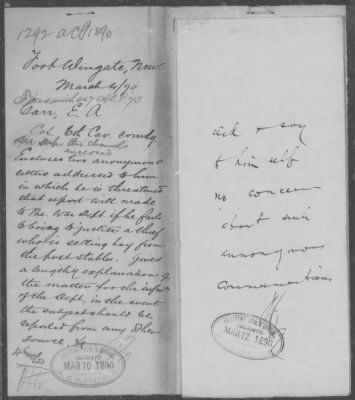 1292 ACP 1890
Fort Wingate, N.M.
March 4/90
Carr, E. A
Col. 6th Cav. comdg.
Encloses two anonymous
letters addressed to him
in which he is threatened
that report will made
to the War Dept if he fails
to bring to justice a thief
who is selling hay from
the post stables. Gives
a lengthy explanation of
the matter for the infn
of the Dept, in the event
the subject should be
reported from any other
source.
RECEIVED
MAR 12 1890
ack & say
to him self
no concern
about such
annonymous
communications
RECEIVED
MAR 10 1890